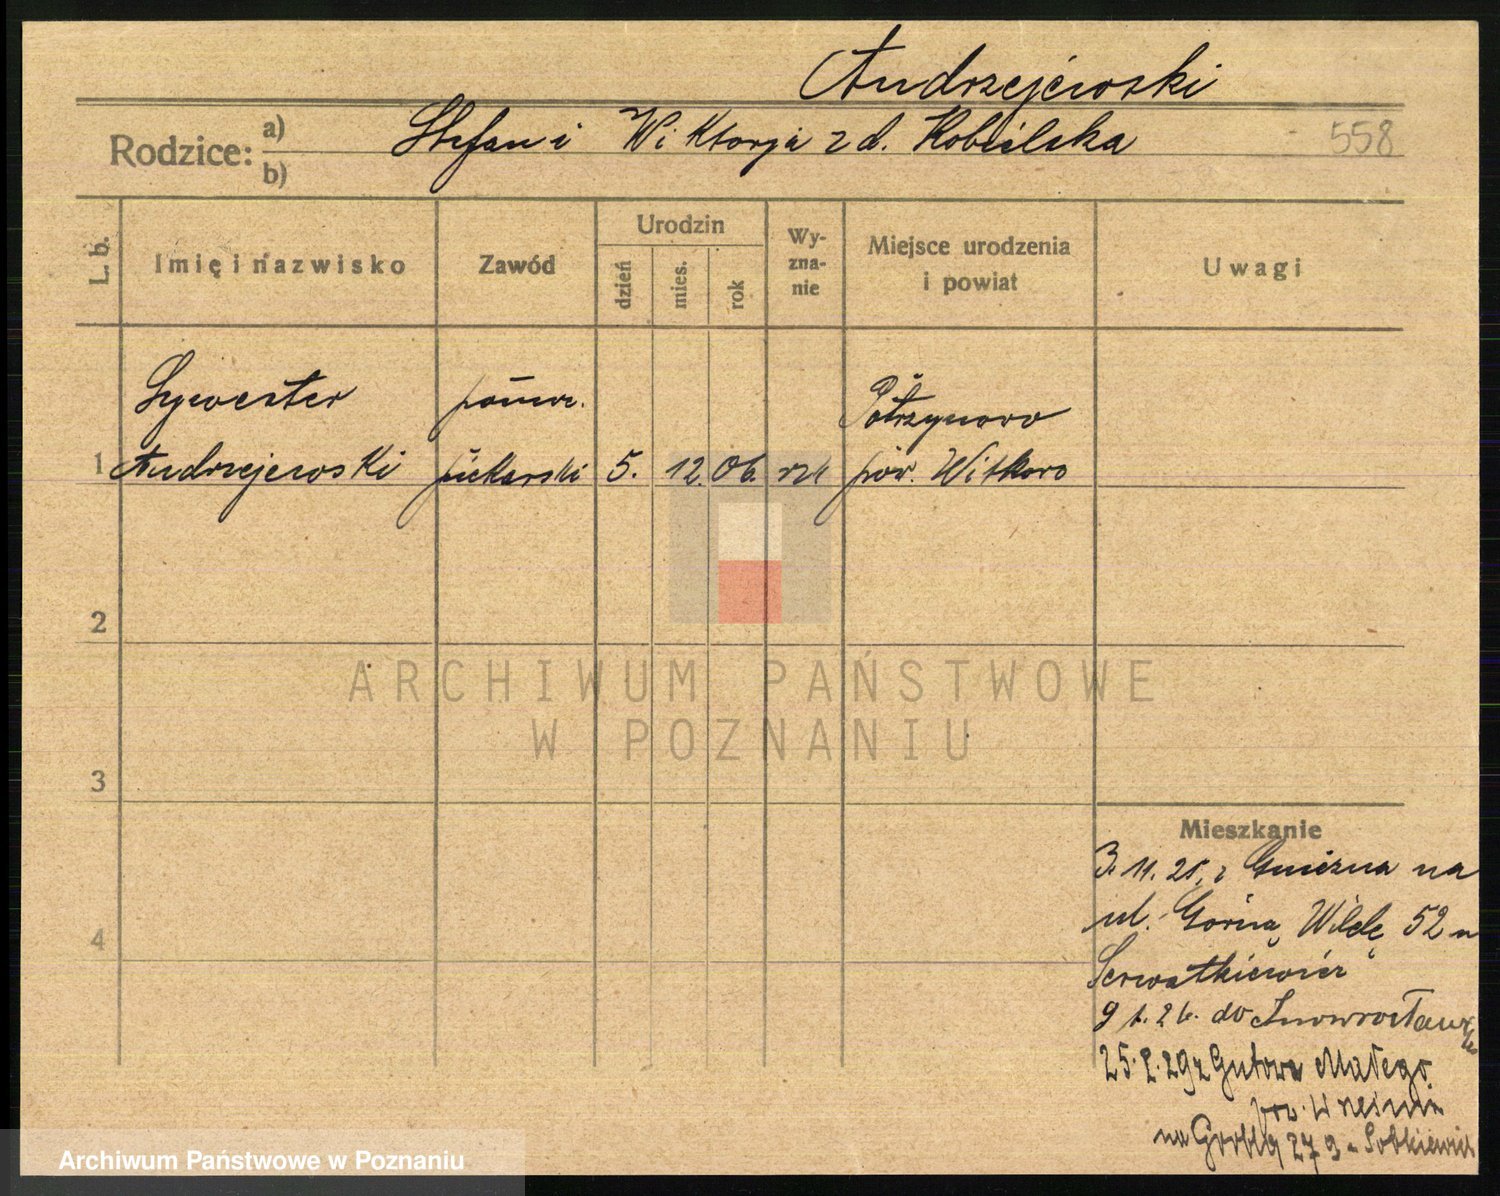 Andrzejewski
Rodzice: a) b) Stefan i Wiktorja z d. Kobielska 558
L. b. Imię i nazwisko Zawód Urodzin dzień mies. rok Wy-zna-nie Miejsce urodzenia i powiat Uwagi
Sylwester pomoc.
1 Andrzejewski piekarski 5. 12. 06. rzk pow. Witkowo
2
3
4
Mieszkanie
3. 11. 25. z Gniezna na
ul. Górna Wilda 52 u
Serwatkiewicz
9 1. 26. do Inowrocławia
25. 2. 29 z Gutowa Małego
pow. Września
na Groblę 27 a Sobkiewicz
ARCHIWUM PAŃSTWOWE
W POZNANIU
Archiwum Państwowe w Poznaniu